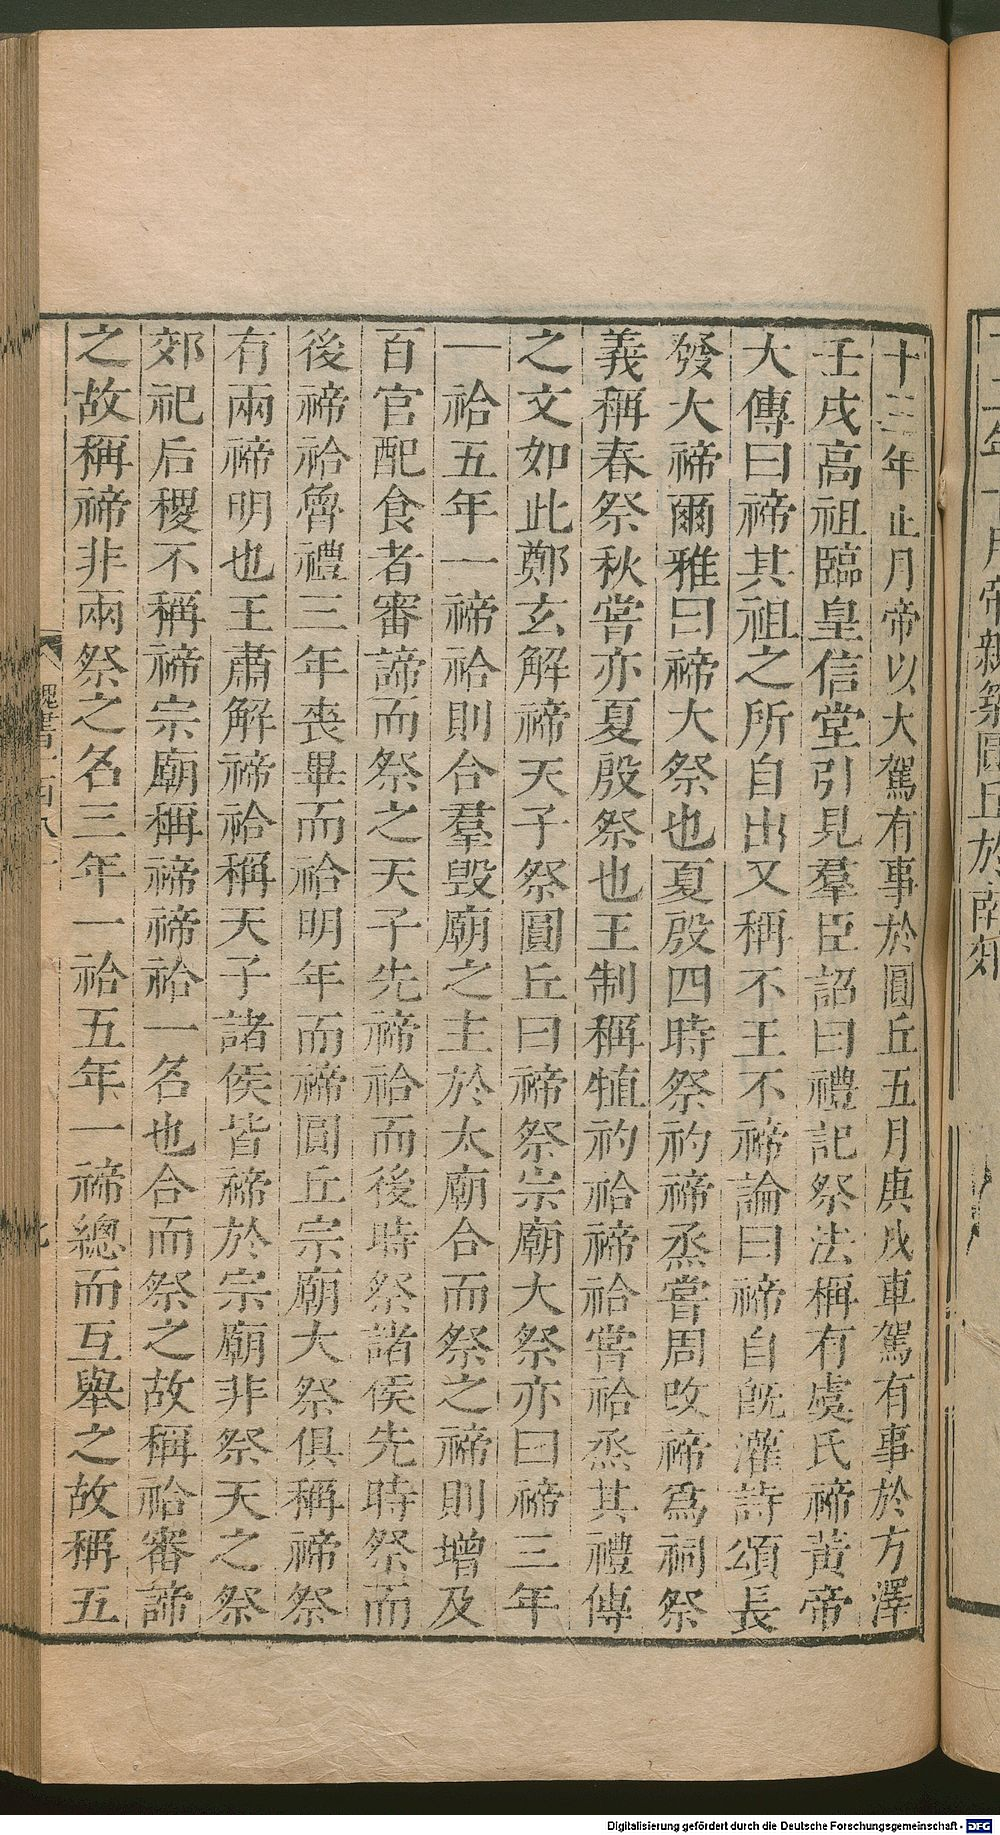 十二年閏月帝親築圓丘於南郊
十三年正月帝以大駕有事於圓丘五月庚戌車駕有事於方澤
壬戌高祖臨皇信堂引見羣臣詔曰禮記祭法稱有虞氏禘黃帝
大傳曰禘其祖之所自出又稱不王不禘論曰禘自旣灌詩頌長
發大禘爾雅曰禘大祭也夏殷四時祭礿禘烝嘗周改禘爲祠祭
義稱春祭秋嘗亦夏殷祭也王制稱犆礿祫禘祫嘗祫烝其禮傳
之文如此鄭玄解禘天子祭圓丘曰禘祭宗廟大祭亦曰禘三年
一祫五年一禘祫則合羣毀廟之主於太廟合而祭之禘則增及
百官配食者審諦而祭之天子先禘祫而後時祭諸侯先時祭而
後禘祫魯禮三年喪畢而祫明年而禘圓丘宗廟大祭俱稱禘祭
有兩禘明也王肅解禘祫稱天子諸侯皆禘於宗廟非祭天之祭
郊祀后稷不稱禘宗廟稱禘禘祫一名也合而祭之故稱祫審諦
之故稱禘非兩祭之名三年一祫五年一禘總而互舉之故稱五
魏書一百四八
Digitalisierung gefördert durch die Deutsche Forschungsgemeinschaft - DFG